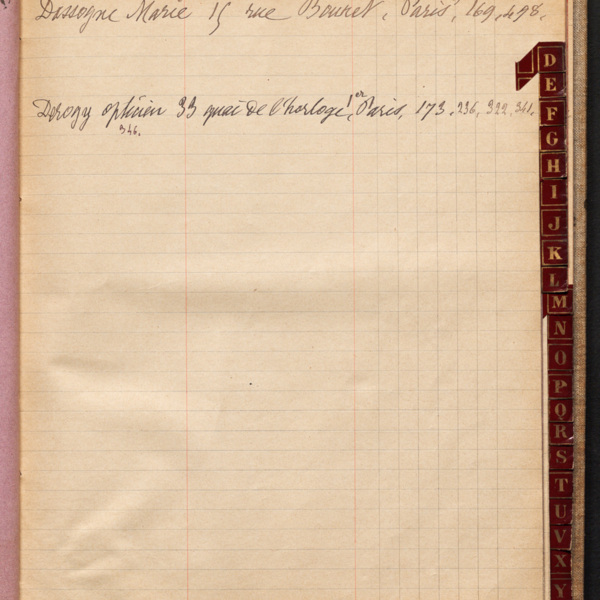 Dassogne Marie 15 rue Bouret, Paris, 169, 498.
Derogy opticien 33 quai de l'horloge, 1er Paris, 173, 236, 322, 341,
346.
D
E
F
G
H
I
J
K
L
M
N
O
P
Q
R
S
T
U
V
X
Y